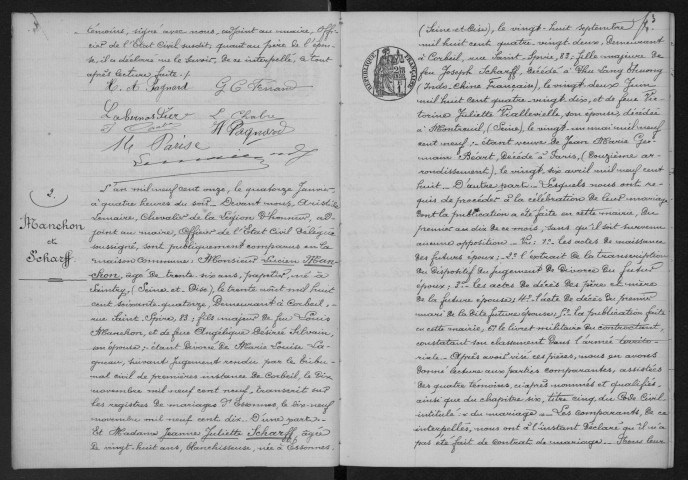 témoins, signé avec nous, adjoint au maire, offi-
cier de l'État Civil susdit; quant au père de l'épou-
se, il a déclaré ne le savoir, de ce interpellé, le tout
après lecture faite./.
A. Pagnard G. C. Fenard
L. Chabre
A. Pagnard
M. Parise
2.
Manchon
et
Scharff.
L'an mil neuf cent onze, le quatorze Janvier
à quatre heures du soir. - Devant nous, Aristide
Lemaire, Chevalier de la Légion d'Honneur, ad-
joint au maire, Officier de l'État Civil délégué
soussigné, sont publiquement comparus en la
maison commune: Monsieur Lucien Man-
chon, âgé de trente six ans, papetier, né à
Saintry, (Seine et Oise), le trente août mil huit
cent soixante quatorze, demeurant à Corbeil,
rue Saint-Spire, 83; fils majeur de feu Louis
Manchon, et de feue Angélique Désirée Silvain,
son épouse; étant divorcé de Marie Louise
suivant jugement rendu par le tribu-
nal civil de première instance de Corbeil, le dix
novembre mil neuf cent neuf, transcrit sur
les registres de mariages d'Essonnes, le dix neuf
novembre mil neuf cent dix. D'une part. -
Et Madame Jeanne Juliette Scharff, âgée
de vingt-huit ans, blanchisseuse, née à Essonnes.
3
RÉPUBLIQUE FRANÇAISE
(Seine et Oise), le vingt-huit septembre
mil huit cent quatre-vingt-deux, demeurant
à Corbeil, rue Saint-Spire, 83; fille majeure de
feu Joseph Scharff, décédé à Phu Lang Thuong
(Indo-Chine Française), le vingt deux Juin
mil huit cent quatre-vingt-dix, et de feue Vic-
torine Juliette Viallevielle, son épouse, décédée
à Montreuil, (Seine), le vingt-un mai mil neuf
cent neuf; - étant veuve de Jean Marie Ger-
main Béart, décédé à Paris, (douzième ar-
rondissement), le vingt six avril mil neuf cent
huit. - D'autre part. - Lesquels nous ont re-
quis de procéder à la célébration de leur mariage
dont la publication a été faite en cette mairie, du
premier au dix de ce mois, sans qu'il soit survenu
aucune opposition. - Vu: 1° les actes de naissance
des futurs époux; 2° l'extrait de la transcription
du dispositif du jugement de divorce du futur
époux; 3° les actes de décès des père et mère
de la future épouse; 4° l'acte de décès du premier
mari de la dite future épouse; 5° la publication faite
en cette mairie; 6° le livret militaire du contractant,
constatant son classement dans l'armée territo-
riale. - Après avoir visé ces pièces, nous en avons
donné lecture aux parties comparantes, assistées
des quatre témoins, ci-après nommés et qualifiés,
ainsi que du chapitre six, titre cinq du Code Civil
intitulé: « du mariage ». - Les comparants, de ce
interpellés, nous ont à l'instant déclaré qu'il n'a
pas été fait de contrat de mariage. - Nous leur